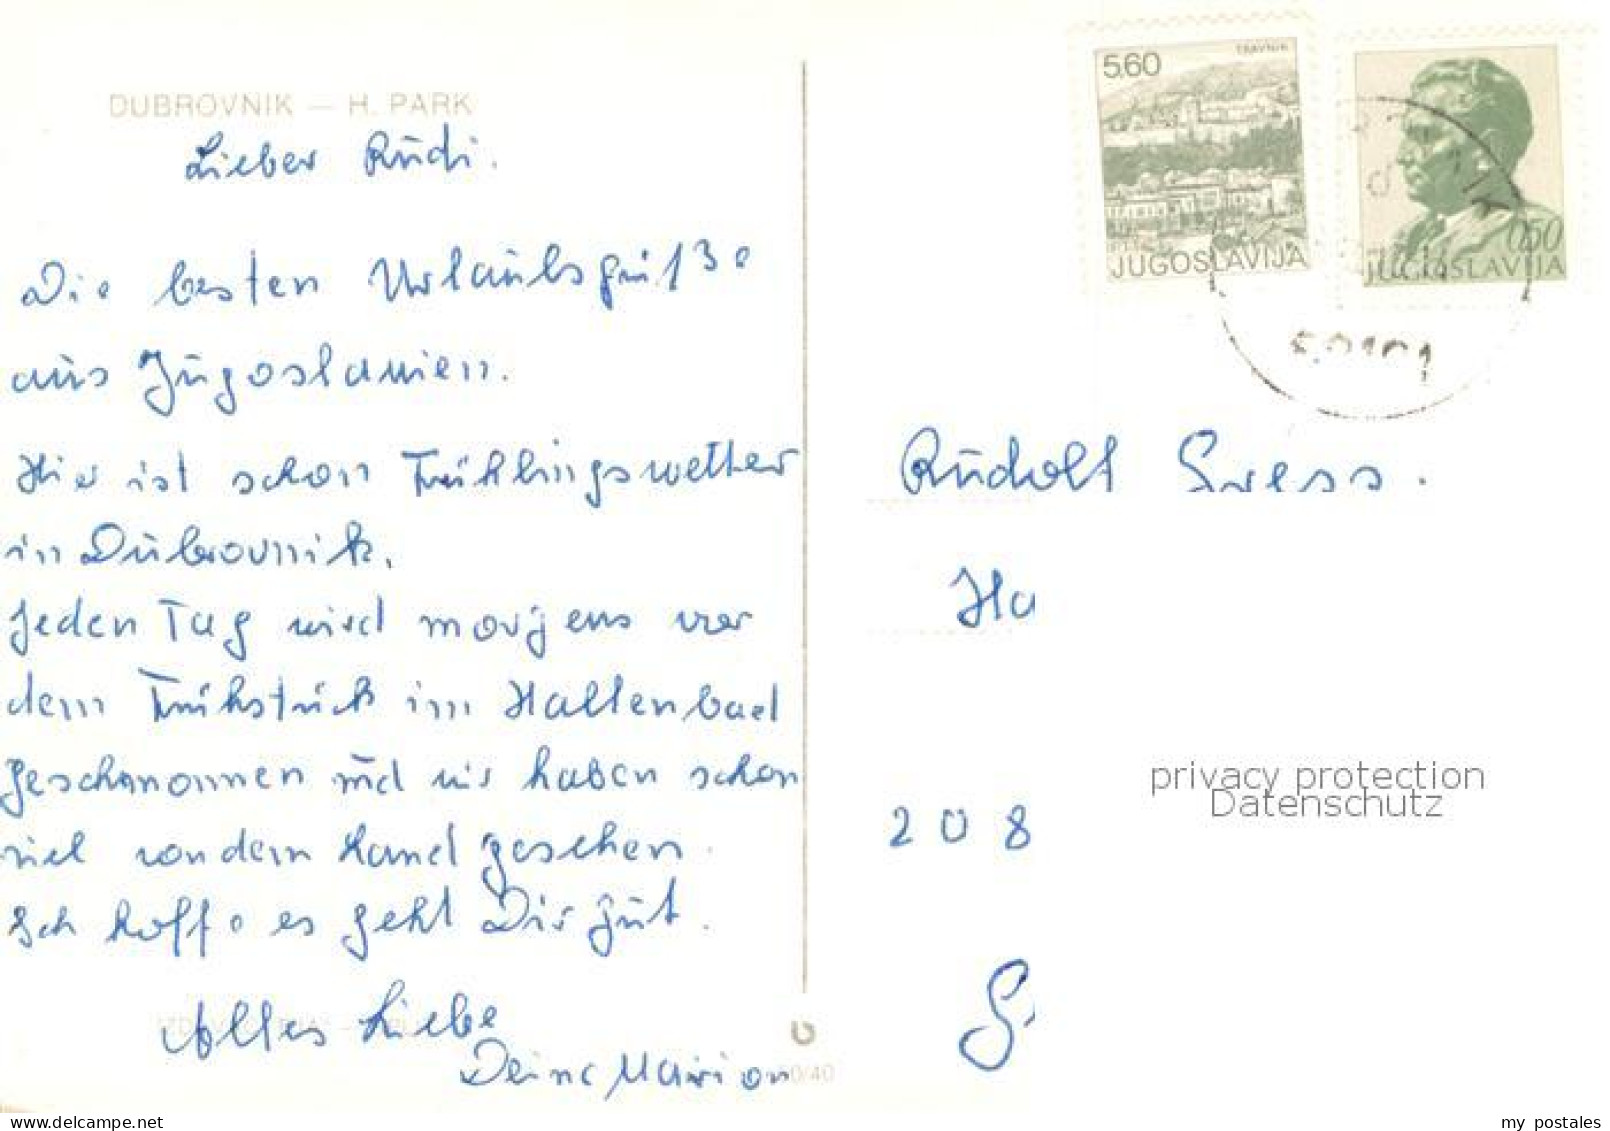 DUBROVNIK — H. PARK
Lieber Rudi.
Die besten Urlaubsgrüße
aus Jugoslawien.
Hier ist schon Frühlingswetter
in Dubrovnik.
Jeden Tag wird morgens vor
dem Frühstück im Hallenbad
geschwommen und wir haben schon
viel von dem Land gesehen.
Ich hoffe es geht Dir gut.
Alles Liebe
Deine Marion
0/40
5,60
TRAVNIK
JUGOSLAVIJA
0,50
JUGOSLAVIJA
50101
Rudolf Gress.
Ha
208
G
privacy protection
Datenschutz
www.delcampe.net
my_postales